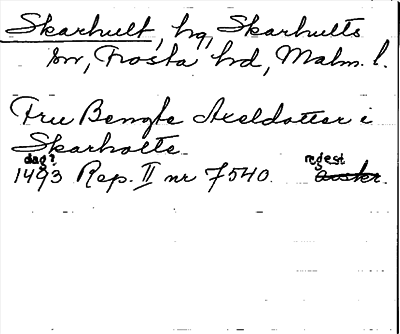 Skarhult, hg, Skarhults
sn, Frosta hd, Malm. l.
Fru Bengte Axeldotter i
Skarholte
dag?
1493 Rep. II nr 7540. regest
avskr.